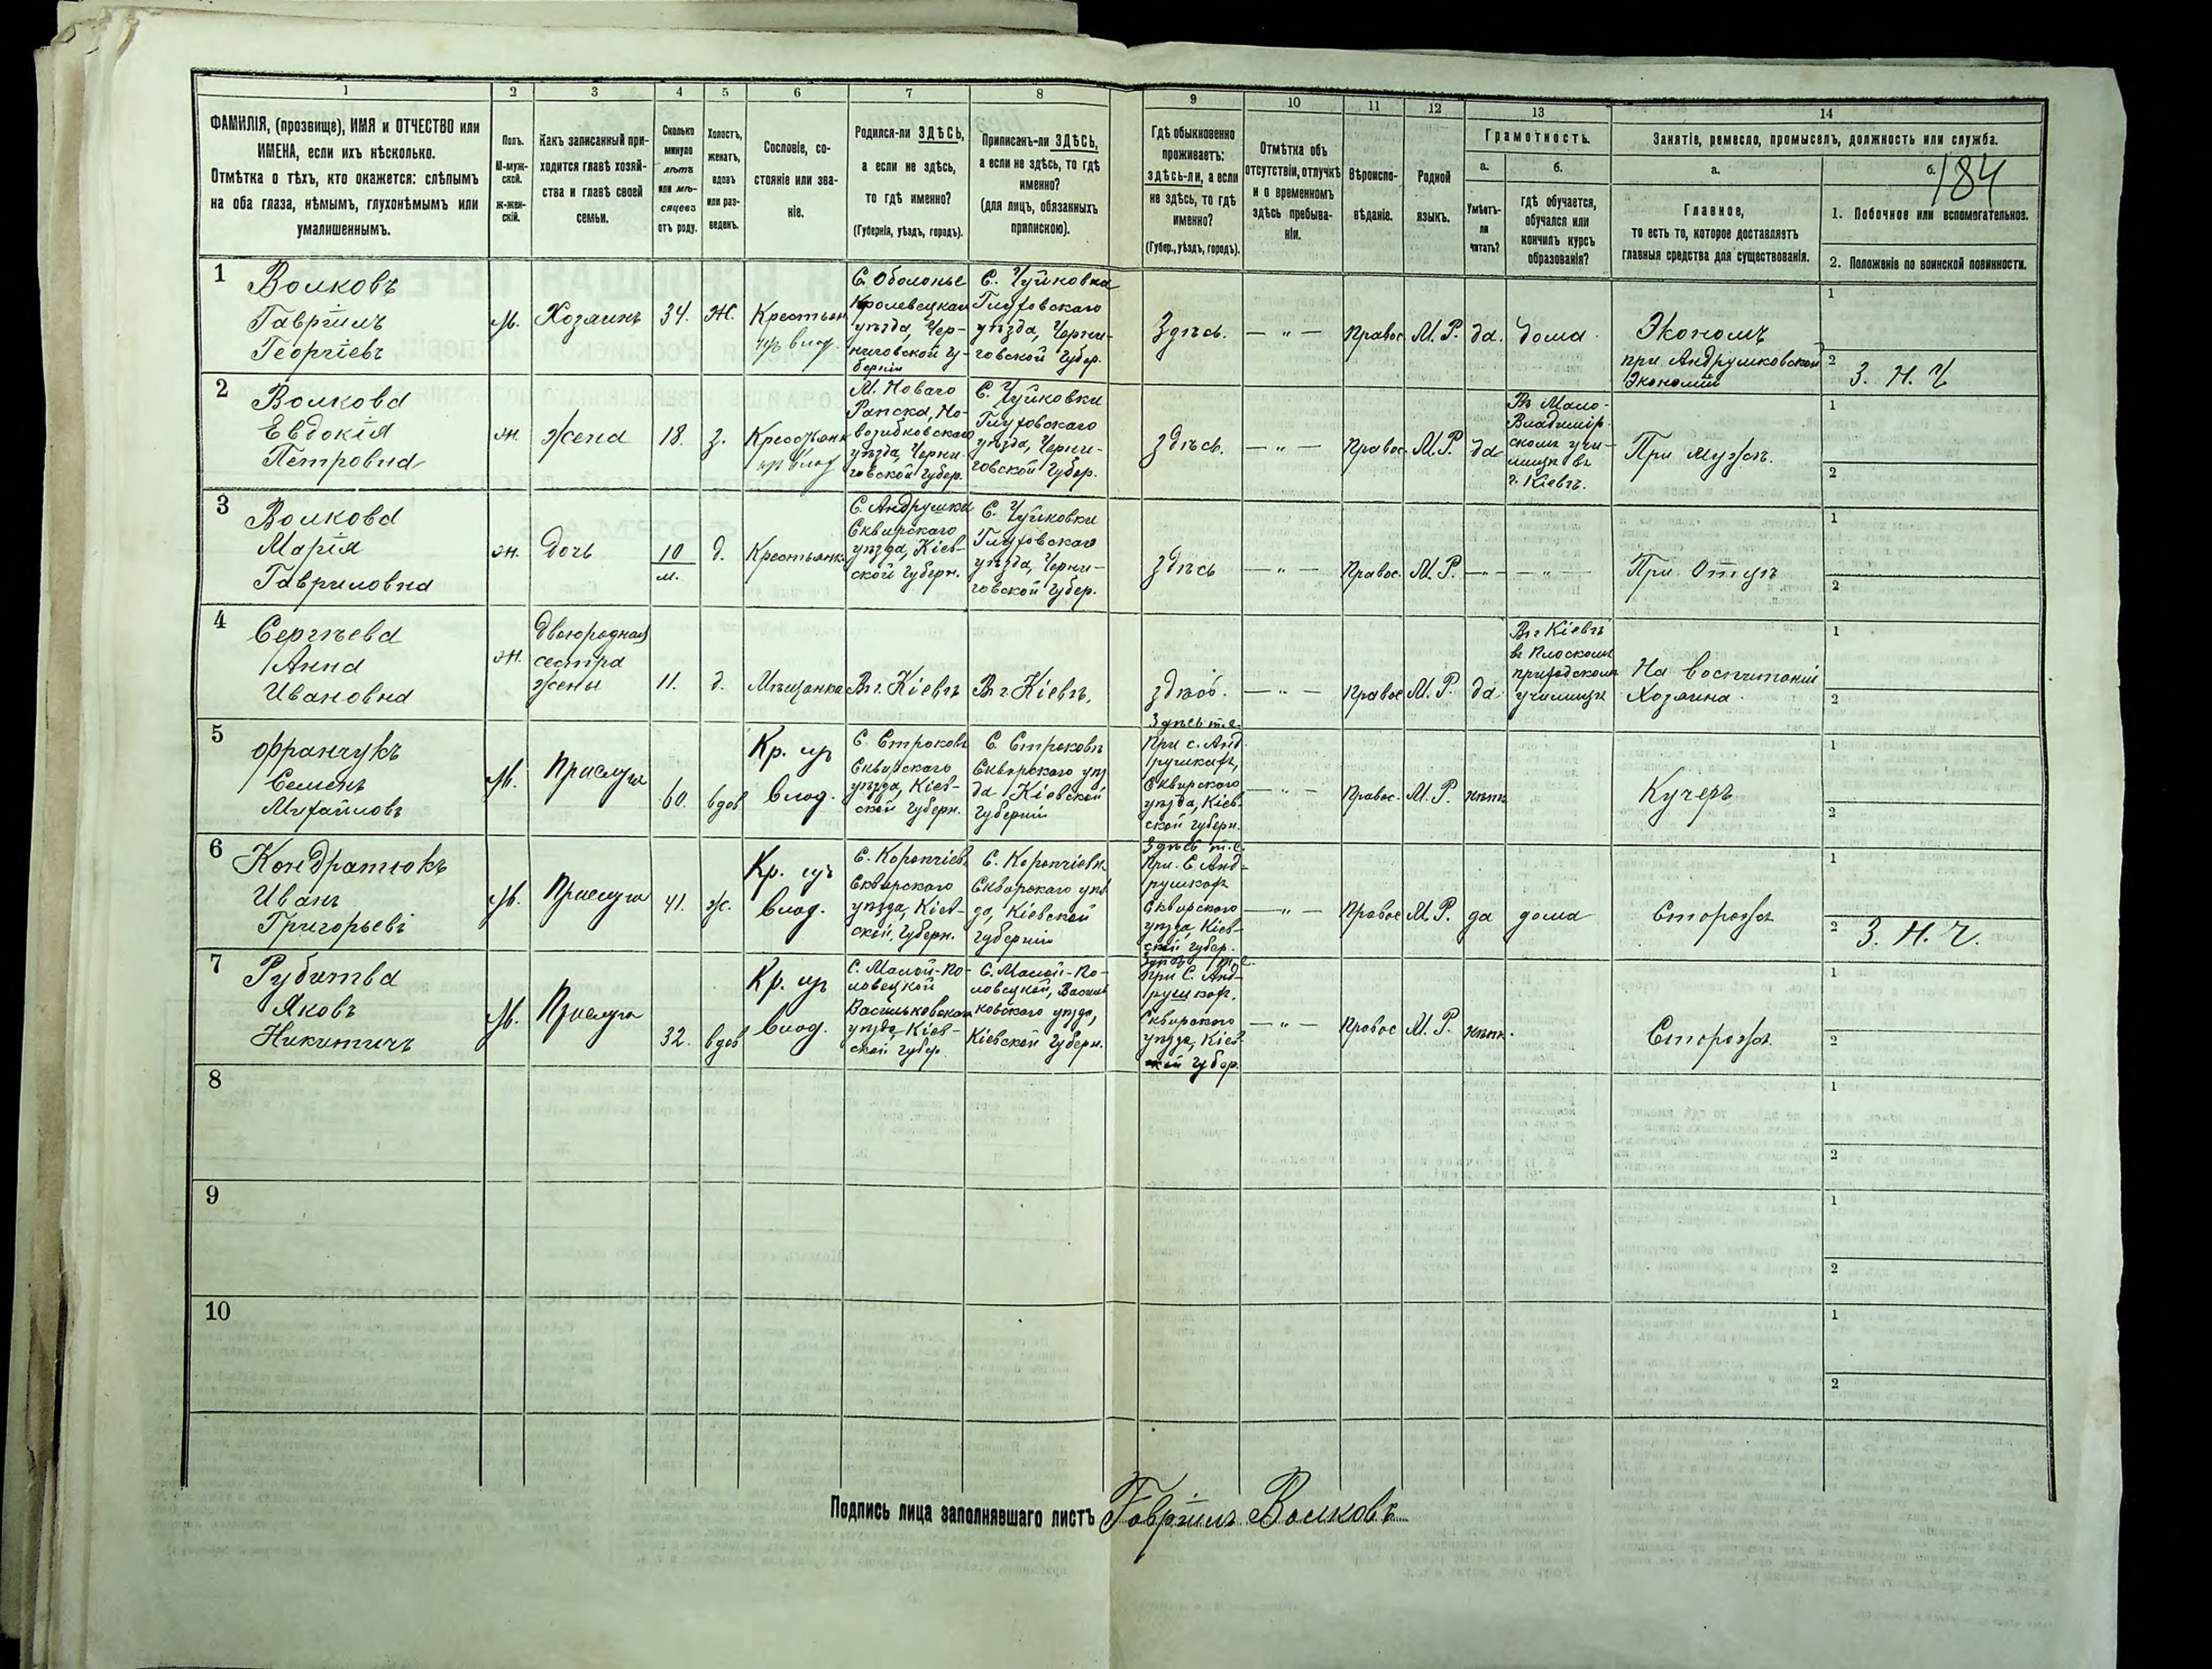 1 2 3 4 5 6 7 8 9 10 11 12 13 14
ФАМИЛІЯ, (прозвище), ИМЯ и ОТЧЕСТВО или
ИМЕНА, если ихъ нѣсколько.
Отмѣтка о тѣхъ, кто окажется: слѣпымъ
на оба глаза, нѣмымъ, глухонѣмымъ или
умалишеннымъ.
Полъ.
М-муж-
ской.
ж-жен-
скій.
Какъ записанный при-
ходится главѣ хозяй-
ства и главѣ своей
семьи.
Сколько
минуло
лѣтъ
или мѣ-
сяцевъ
отъ роду.
Холостъ,
женатъ,
вдовъ
или раз-
веденъ.
Сословіе, со-
стояніе или зва-
ніе.
Родился-ли ЗДѢСЬ,
а если не здѣсь,
то гдѣ именно?
(Губернія, уѣздъ, городъ).
Приписанъ-ли ЗДѢСЬ,
а если не здѣсь, то гдѣ
именно?
(для лицъ, обязанныхъ
припискою).
Гдѣ обыкновенно
проживаетъ:
здѣсь-ли, а если
не здѣсь, то гдѣ
именно?
(Губер., уѣздъ, городъ).
Отмѣтка объ
отсутствіи, отлучкѣ
и о временномъ
здѣсь пребыва-
ніи.
Вѣроиспо-
вѣданіе.
Родной
языкъ.
Грамотность.
а.
Умѣетъ-
ли
читать?
б.
гдѣ обучается,
обучался или
кончилъ курсъ
образованія?
Занятіе, ремесло, промыселъ, должность или служба.
а.
Главное,
то есть то, которое доставляетъ
главныя средства для существованія.
б.
184
1. Побочное или вспомогательное.
2. Положеніе по воинской повинности.
1
Волковъ
Гавріилъ
Георгіевъ
М.
Хозаинъ
34.
Ж.
Крестьян
изъ влад.
С. Оболонье
Кролевецкаго
уѣзда, Чер-
ниговской Гу-
берніи
С. Чуйковка
Глуховскаго
уѣзда, Черни-
говской Губер.
Здѣсь.
— " —
Правос
М. Р.
да.
дома.
Экономъ
при Андрушковской
Экономіи
1
2
З. Н. Ч
2
Волкова
Евдокія
Петровна
ж.
жена
18.
з.
Крестьянк
изъ влад
М. Новаго
Рапска, Но-
возибковскаго
уѣзда, Черни-
говской Губер.
С. Чуйковки
Глуховскаго
уѣзда, Черни-
говской Губер.
здѣсь.
— " —
Правос
М. Р.
да
Въ Мало-
Владимір-
скомъ учи-
лищѣ въ
г. Кіевѣ.
При мужѣ.
1
2
3
Волкова
Марія
Гавриловна
ж.
дочь
10
м.
д.
Крестьянка
С. Андрушки
Сквирскаго
уѣзда, Кіев-
ской Губерн.
С. Чуйковки
Глуховскаго
уѣзда, Черни-
говской Губер.
здѣсь
— " —
Правос.
М. Р.
— " —
— " —
При Отцѣ
1
2
4
Сергѣева
Анна
Ивановна
ж.
двоюродная
сестра
жены
11.
д.
Мѣщанка
Въ г. Кіевѣ
Въ г. Кіевѣ.
здѣсь.
— " —
Правос
М. Р.
да
Въ г Кіевѣ
въ Плоскомъ
приходскомъ
училищѣ
На воспитаніи
Хозяина.
1
2
5
Франчукъ
Семенъ
Михайловъ
М.
Прислуга
60.
вдов
Кр. изъ
влад.
С. Строковъ
Сквирскаго
уѣзда, Кіев-
ской Губерн.
С. Строковъ
Сквирскаго уѣз
да Кіевской
Губерніи
Здѣсь т.е.
При с. Анд-
рушкахъ,
Сквирскаго
уѣзда, Кіев-
ской Губерн.
— " —
Правос.
М. Р.
нѣтъ
Кучеръ
1
2
6
Кондратюкъ
Иванъ
Григорьевъ
М.
Прислуга
41.
ж.
Кр. изъ
влад.
Сквирскаго
уѣзда, Кіев-
ской, Губерн.
Сквирскаго уѣз
да, Кіевской
Губерніи
Здѣсь т.е.
При. С Анд-
рушкахъ
Сквирскаго
уѣзда Кіев-
ской Губер.
— " —
Правос
М. Р.
да
дома
Сторожъ
1
2
З. Н. Ч.
7
Рубитва
Яковъ
Никитичъ
М.
Прислуга
32.
вдов
Кр. изъ
влад.
С. Малой-По-
ловецкой
Васильковскаго
уѣзда Кіев-
ской Губер
С. Малой-По-
ловецкой, Василь
ковскаго уѣзда,
Кіевской Губерн.
Здѣсь т.е.
При С. Анд-
рушках.
Сквирскаго
уѣзда, Кіев
ской Губер.
— " —
Правос
М. Р.
нѣтъ.
Сторожъ
1
2
8
1
2
9
1
2
10
1
2
Подпись лица заполнявшаго листъ Гавріилъ Волковъ